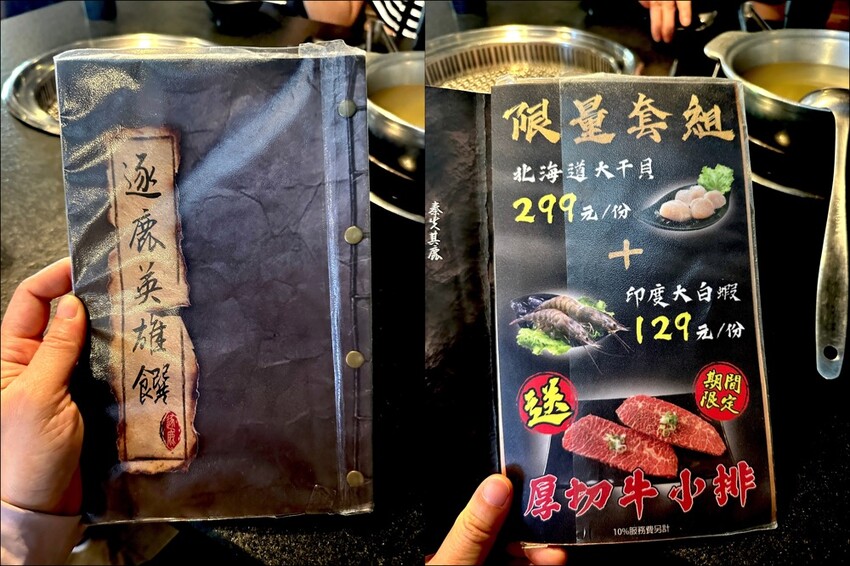 逐鹿英雄饌
秦失其鹿
限量套組
北海道大干貝
299元/份
+
印度大白蝦
129元/份
送
期間
限定
厚切牛小排
10%服務費另計